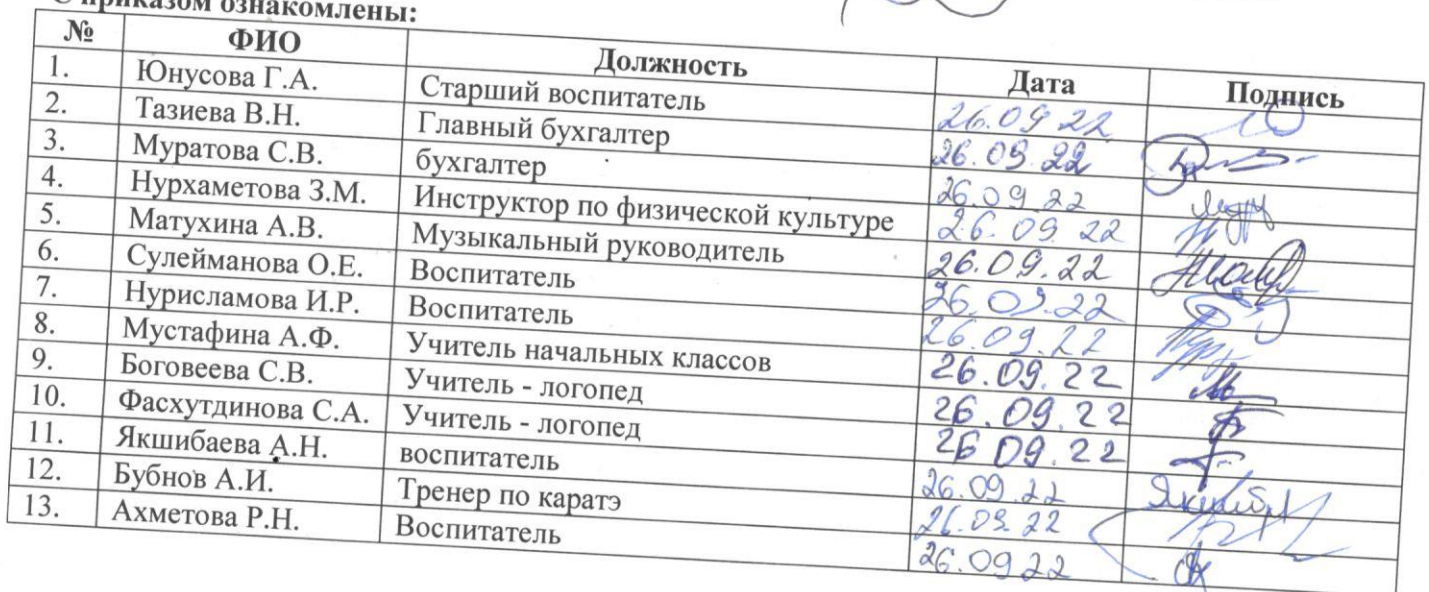 С приказом ознакомлены:
№ ФИО Должность Дата Подпись
1. Юнусова Г.А. Старший воспитатель 26.09.22
2. Тазиева В.Н. Главный бухгалтер 26.09.22
3. Муратова С.В. бухгалтер 26.09.22
4. Нурхаметова З.М. Инструктор по физической культуре 26.09.22
5. Матухина А.В. Музыкальный руководитель 26.09.22
6. Сулейманова О.Е. Воспитатель 26.09.22
7. Нурисламова И.Р. Воспитатель 26.09.22
8. Мустафина А.Ф. Учитель начальных классов 26.09.22
9. Боговеева С.В. Учитель - логопед 26.09.22
10. Фасхутдинова С.А. Учитель - логопед 26 09.22
11. Якшибаева А.Н. воспитатель 26.09.22
12. Бубнов А.И. Тренер по каратэ 26.09.22
13. Ахметова Р.Н. Воспитатель 26.09 22